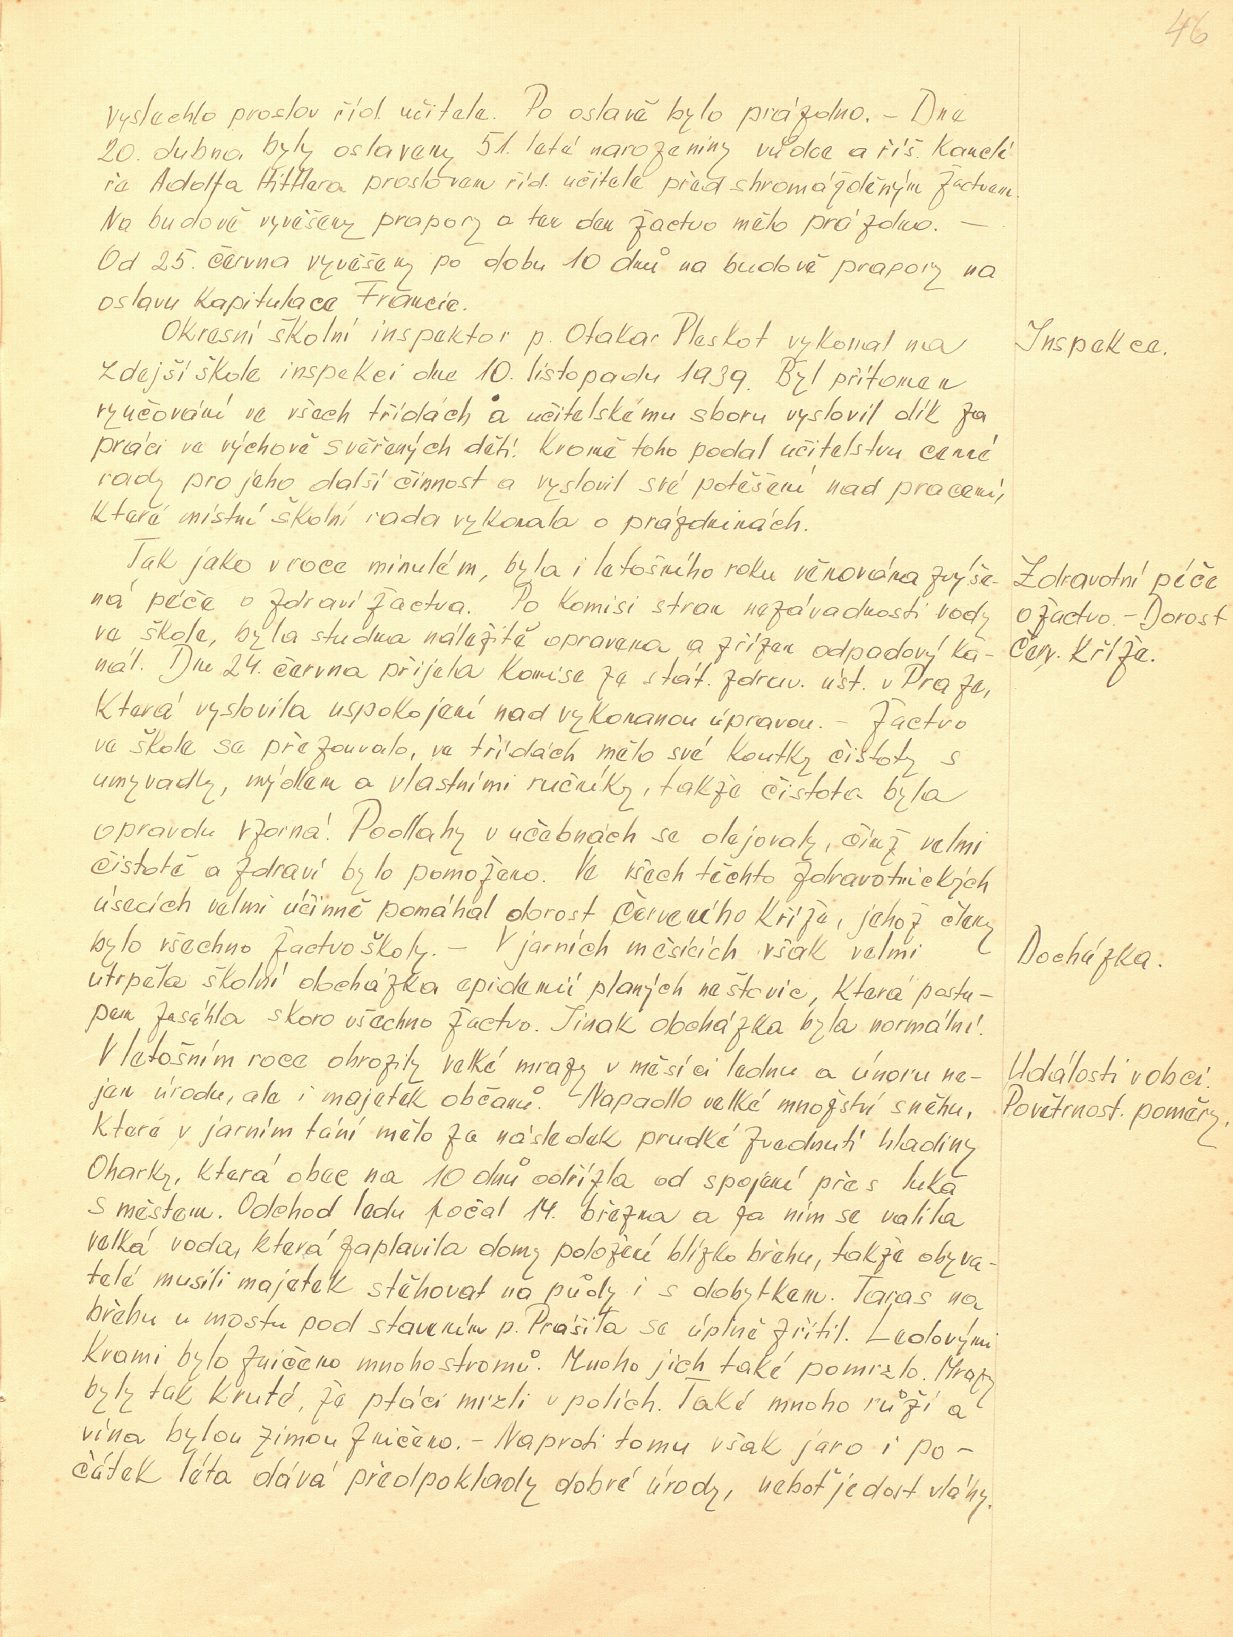 46
vyslechlo proslov říd. učitele. Po oslavě bylo prázdno. – Dne
20. dubna byly oslaveny 51. leté narozeniny vůdce a říš. kanclé
ře Adolfa Hittlera proslovem říd. učitele před shromážděným žactvem.
Na budově vyvěšeny prapory a ten den žactvo mělo prázdno. –
Od 25. června vyvěšeny po dobu 10 dnů na budově prapory na
oslavu kapitulace Francie.
Okresní školní inspektor p. Otakar Pleskot vykonal na
Inspekce.
zdejší škole inspekci dne 10. listopadu 1939. Byl přítomen
vyučování ve všech třídách a učitelskému sboru vyslovil dík za
práci ve výchově svěřených dětí. Kromě toho podal učitelstvu cenné
rady pro jeho další činnost a vyslovil své potěšení nad pracemi,
které místní školní rada vykonala o prázdninách.
Tak jako v roce minulém, byla i letošního roku věnována zvýše-
Zdravotní péče
ná péče o zdraví žactva. Po komisi stran nezávadnosti vody
o žactvo. – Dorost
ve škole, byla studna náležitě opravena a zřízen odpadový ka-
Červ. kříže.
nál. Dne 24. června přijela komise ze stát. zdrav. úst. v Praze,
která vyslovila uspokojení nad vykonanou úpravou. – Žactvo
ve škole se přezouvalo, ve třídách mělo své koutky čistoty s
umyvadly, mýdlem a vlastními ručníky, takže čistota byla
opravdu vzorná. Podlahy v učebnách se olejovaly, čímž velmi
čistotě a zdraví bylo pomoženo. Ve všech těchto zdravotnických
úsecích velmi účinně pomáhal dorost Červeného kříže, jehož členy
bylo všechno žactvo školy. – V jarních měsících však velmi
Docházka.
utrpěla školní docházka epidemií planých neštovic, která postu-
pem zasáhla skoro všechno žactvo. Jinak docházka byla normální.
V letošním roce ohrozily velké mrazy v měsíci lednu a únoru ne-
Události v obci.
jen úrodu, ale i majetek občanů. Napadlo velké množství sněhu,
Povětrnost. poměry.
které v jarním tání mělo za následek prudké zvednutí hladiny
Oharky, která obec na 10 dnů odřízla od spojení přes luka
s městem. Odchod ledu počal 14. března a za ním se valila
velká voda, která zaplavila domy položené blízko břehu, takže obyva-
telé musili majetek stěhovat na půdy i s dobytkem. Taras na
břehu u mostu pod stavením p. Prášila se úplně zřítil. Ledovými
krami bylo zničeno mnoho stromů. Mnoho jich také pomrzlo. Mrazy
byly tak kruté, že ptáci mrzli v polích. Také mnoho růží a
vína bylou zimou zničeno. – Naproti tomu však jaro i po-
čátek léta dává předpoklady dobré úrody, neboť je dost vláhy.